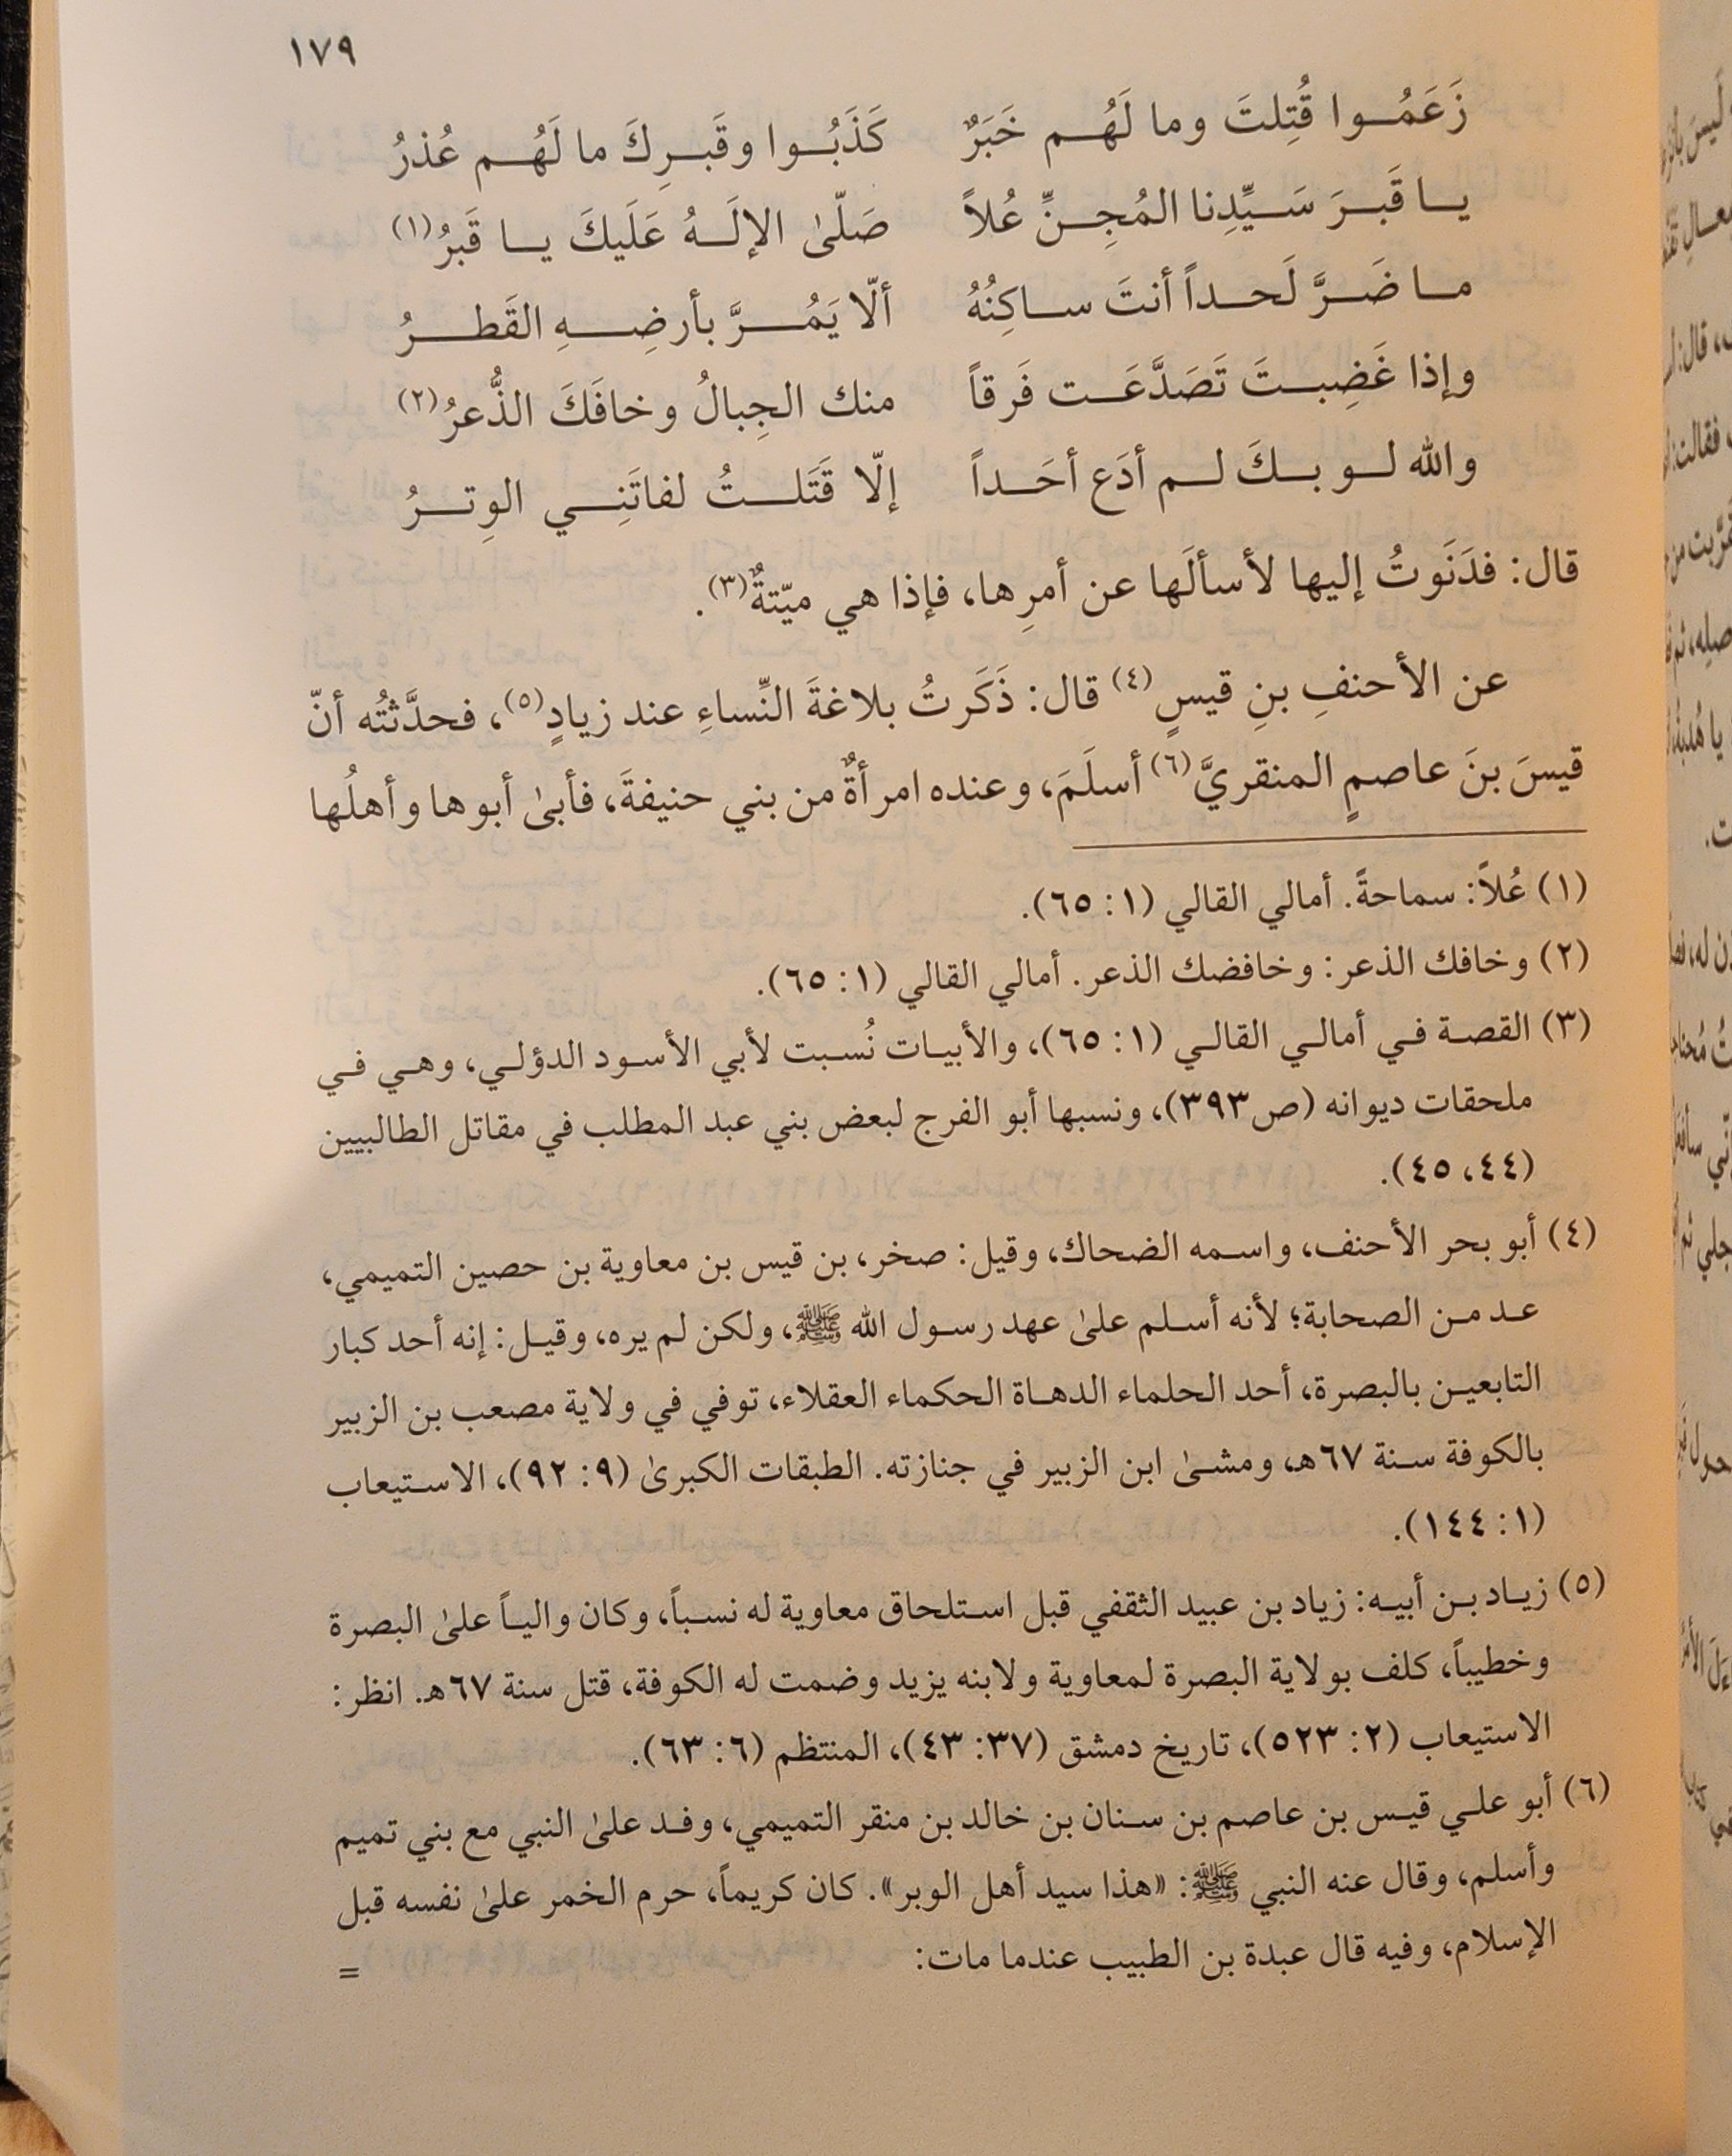 ١٧٩
زَعَمُـــوا قُتِلتَ وما لَهُـــم خَبَرٌ كَذَبُـــوا وقَبـــرِكَ ما لَهُـــم عُذرُ
يـــا قَبـــرَ سَـــيِّدِنا المُجِـــنِّ عُلاً صَلّىٰ الإلَـــهُ عَلَيكَ يـــا قَبرُ(١)
مـــا ضَـــرَّ لَحـــداً أنتَ ســـاكِنُهُ ألّا يَمُـــــرَّ بأرضِـــــهِ القَطـــــرُ
وإذا غَضِبـــتَ تَصَدَّعَـــت فَرقاً منك الجِبالُ وخافَكَ الذُّعرُ(٢)
والله لـــو بـــكَ لـــم أدَع أحَـــداً إلّا قَتَلـــتُ لفاتَنِـــي الوِتـــرُ
قال: فدَنَوتُ إليها لأسألَها عن أمرِها، فإذا هي ميّتةٌ(٣).
عن الأحنفِ بنِ قيسٍ(٤) قال: ذَكَرتُ بلاغةَ النِّساءِ عند زيادٍ(٥)، فحدَّثتُه أنّ
قيسَ بنَ عاصمٍ المنقريَّ(٦) أسلَمَ، وعنده امرأةٌ من بني حنيفةَ، فأبىٰ أبوها وأهلُها
(١) عُلاً: سماحةً. أمالي القالي (١: ٦٥).
(٢) وخافك الذعر: وخافضك الذعر. أمالي القالي (١: ٦٥).
(٣) القصة في أمالي القالي (١: ٦٥)، والأبيات نُسبت لأبي الأسود الدؤلي، وهي في
ملحقات ديوانه (ص٣٩٣)، ونسبها أبو الفرج لبعض بني عبد المطلب في مقاتل الطالبيين
(٤٤، ٤٥).
(٤) أبو بحر الأحنف، واسمه الضحاك، وقيل: صخر، بن قيس بن معاوية بن حصين التميمي،
عد من الصحابة؛ لأنه أسلم علىٰ عهد رسول الله ﷺ، ولكن لم يره، وقيل: إنه أحد كبار
التابعين بالبصرة، أحد الحلماء الدهاة الحكماء العقلاء، توفي في ولاية مصعب بن الزبير
بالكوفة سنة ٦٧هـ، ومشىٰ ابن الزبير في جنازته. الطبقات الكبرىٰ (٩: ٩٢)، الاستيعاب
(١: ١٤٤).
(٥) زياد بن أبيه: زياد بن عبيد الثقفي قبل استلحاق معاوية له نسباً، وكان والياً علىٰ البصرة
وخطيباً، كلف بولاية البصرة لمعاوية ولابنه يزيد وضمت له الكوفة، قتل سنة ٦٧هـ. انظر:
الاستيعاب (٢: ٥٢٣)، تاريخ دمشق (٣٧: ٤٣)، المنتظم (٦: ٦٣).
(٦) أبو علي قيس بن عاصم بن سنان بن خالد بن منقر التميمي، وفد علىٰ النبي مع بني تميم
وأسلم، وقال عنه النبي ﷺ: «هذا سيد أهل الوبر». كان كريماً، حرم الخمر علىٰ نفسه قبل
الإسلام، وفيه قال عبدة بن الطبيب عندما مات: =